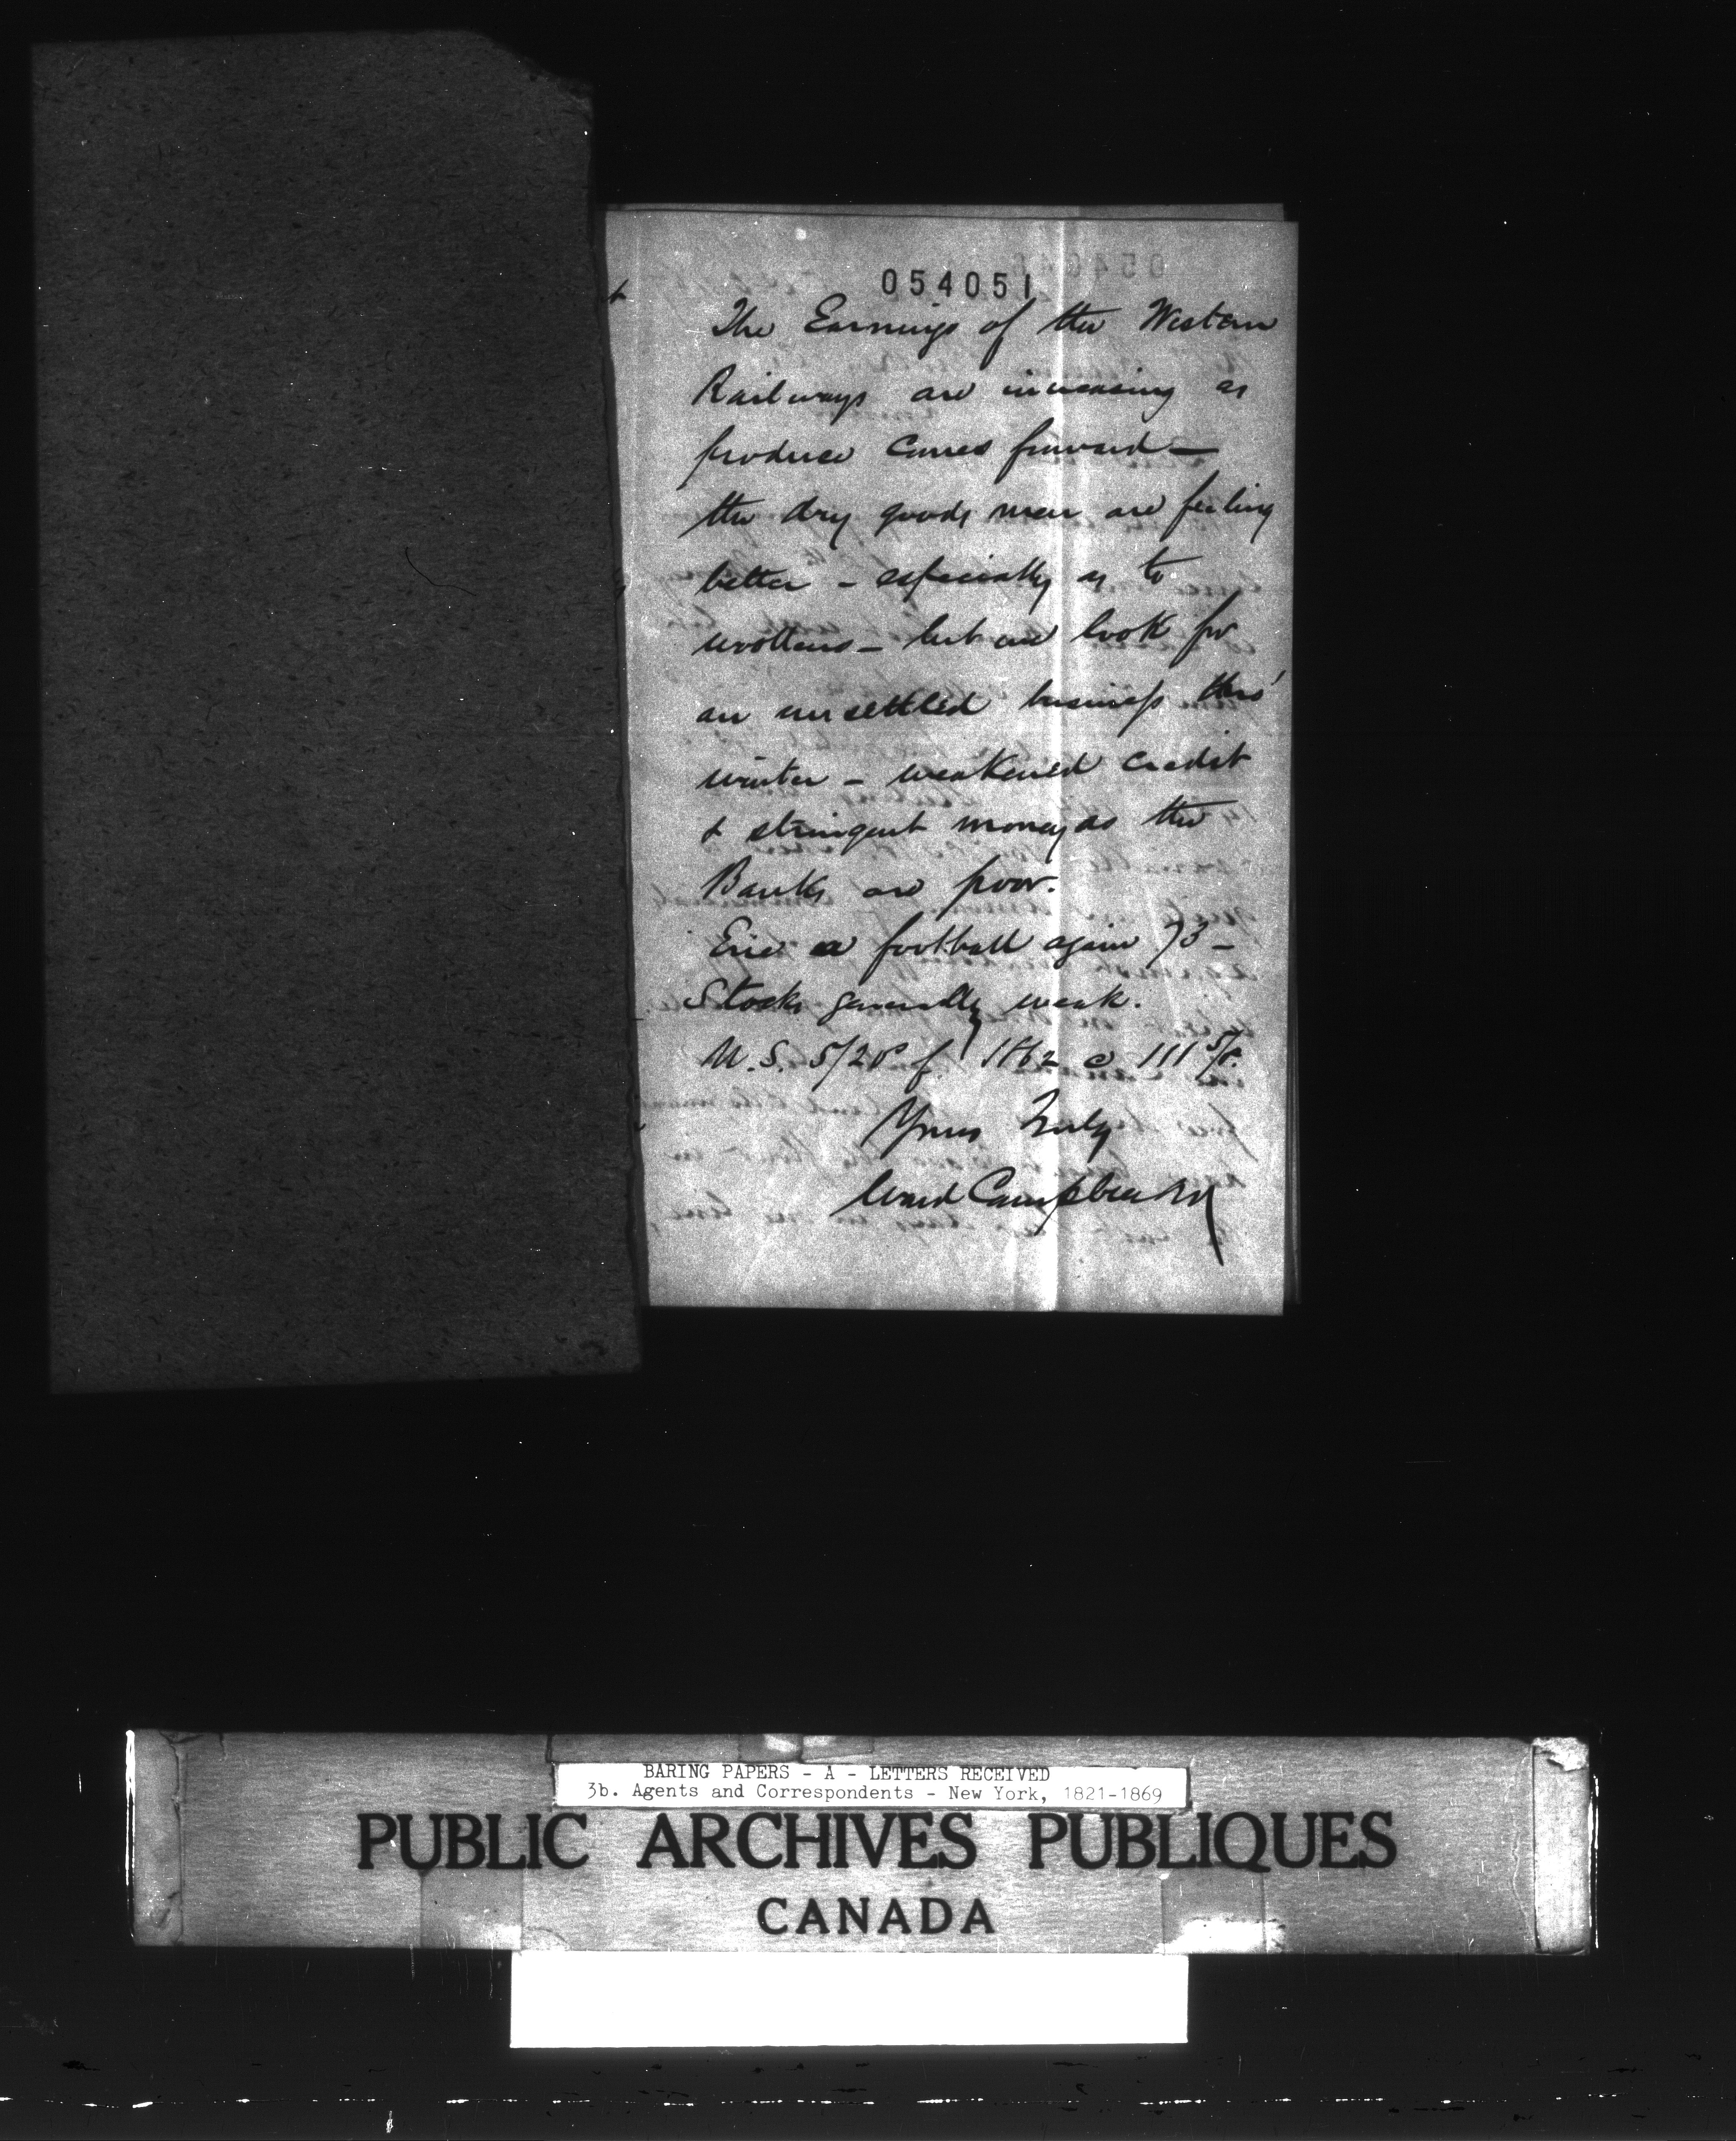 054051
The Earnings of the Western
Railways are increasing as
produce comes forward —
the dry goods men are feeling
better – especially as to
woollens – but we look for
an unsettled business thro'
winter – weakened credit
& stringent money as the
Banks are poor.
Erie a football again 73 –
Stocks generally weak.
U.S. 5/20s of 1862 @ 111 5/8.
Yours Truly
Ward Campbell &
BARING PAPERS - A - LETTERS RECEIVED
3b. Agents and Correspondents - New York, 1821-1869
PUBLIC ARCHIVES PUBLIQUES
CANADA